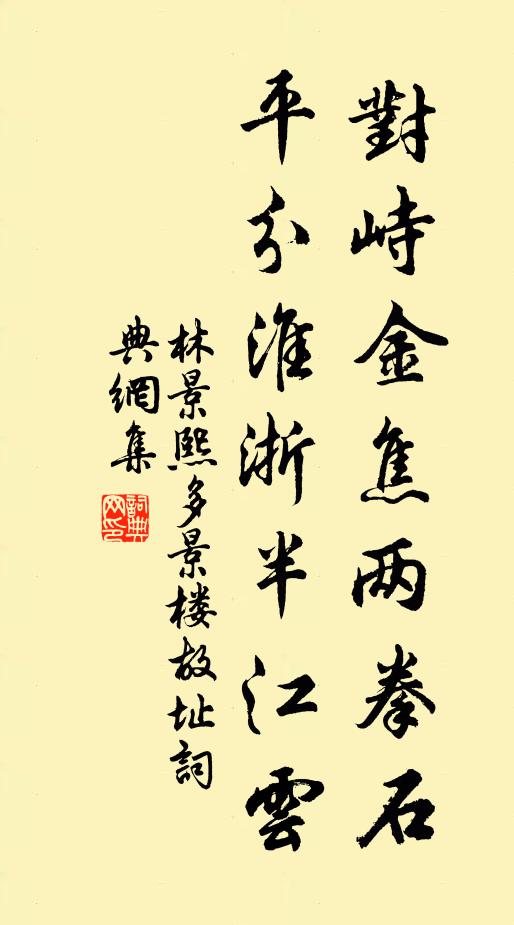 對峙金焦两拳石
平分淮浙半江雲
林景熙多景楼故址詞
典網集
詞典
网印